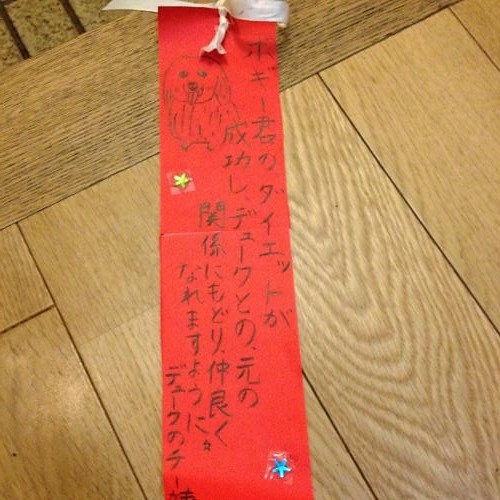 ボギー君のダイエットが
成功し、デュークとの、元の
関係にもどり、仲良く
なれますように☆
デュークのチー